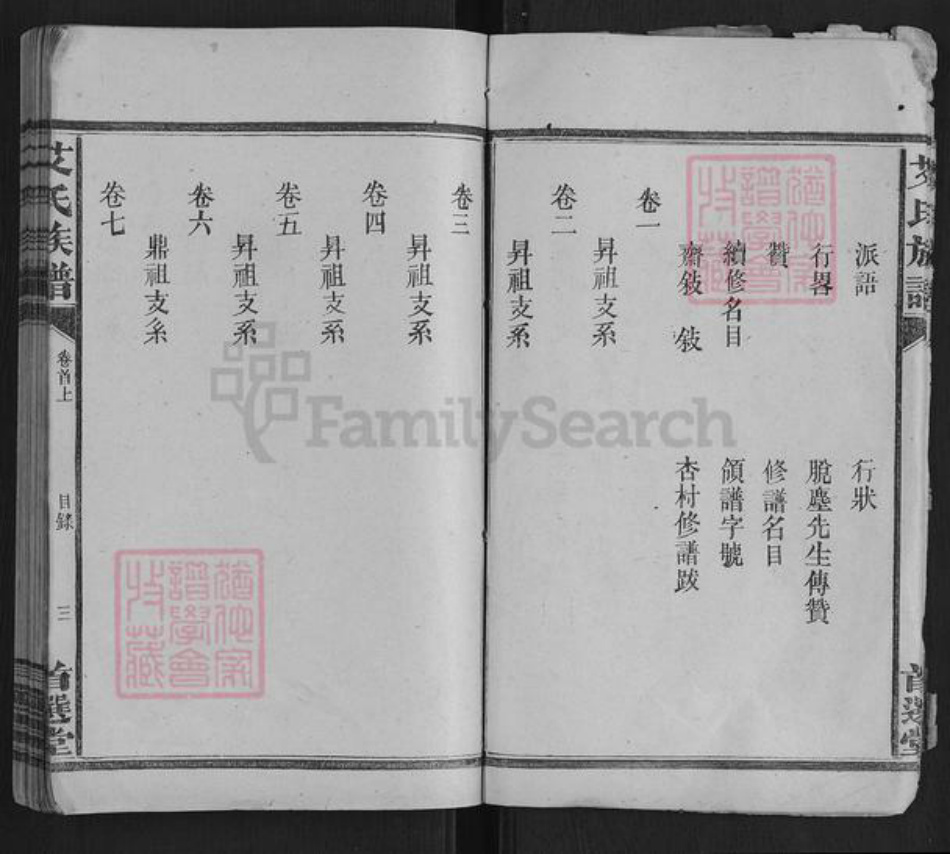 艾氏族譜
首選堂
派語 行狀
行畧 脫塵先生傳贊
贊 修譜名目
續修名目 領譜字號
齋敍 敍 杏村修譜跋
卷一
昇祖支系
卷二
昇祖支系
卷三
昇祖支系
卷四
昇祖支系
卷五
昇祖支系
卷六
鼎祖支系
卷七
艾氏族譜
卷首上
目錄
三
首選堂
猶他家
譜學會
收藏
猶他家
譜學會
收藏
FamilySearch